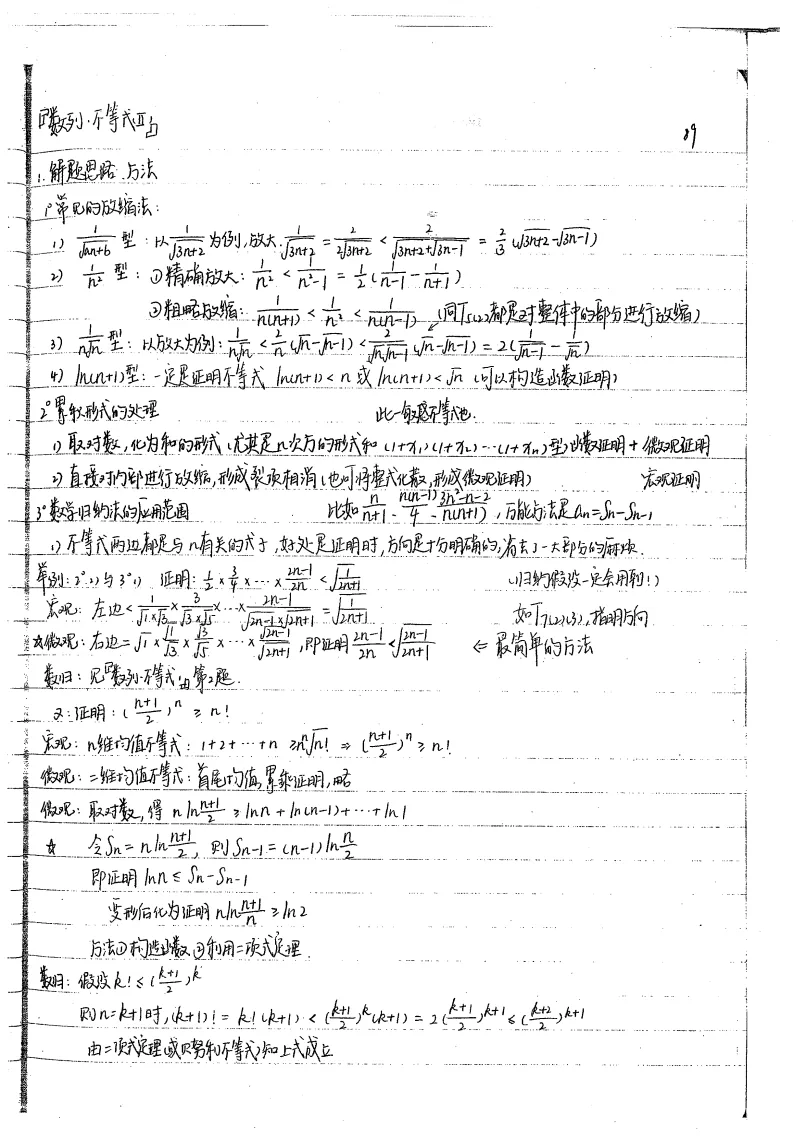 『数列·不等式Ⅱ』
89
1. 解题思路·方法
1°常见的放缩法:
1) 1/√(an+b) 型: 以 1/√(3n+2) 为例, 放大: 1/√(3n+2) = 2/(2√(3n+2)) < 2/(√(3n+2)+√(3n-1)) = 2/3 (√(3n+2)-√(3n-1))
2) 1/n² 型: ①精确放大: 1/n² < 1/(n²-1) = 1/2 (1/(n-1) - 1/(n+1))
②粗略放缩: 1/(n(n+1)) < 1/n² < 1/(n(n-1)) (同T5(2)都是对整体中的部分进行放缩)
3) 1/(n√n) 型: 以放大为例: 1/(n√n) < 2/n (√n-√(n-1)) < 2/(√n√(n-1)) (√n-√(n-1)) = 2(1/√(n-1) - 1/√n)
4) ln(n+1)型: 一定是证明不等式 ln(n+1)<n 或 ln(n+1)<√n (可以构造函数证明)
2°累积形式的处理 此一般是不等式也.
1) 取对数, 化为和的形式 (尤其是n次方的形式和 (1+x₁)(1+x₂)…(1+xₙ)型) 函数证明 + 微观证明
2) 直接对内部进行放缩, 形成裂项相消 (也可将整式化散, 形成微观证明) 宏观证明
3°数学归纳法的应用范围 比如 n/(n+1)、n(n-1)/4、(3n²-n-2)/(n(n+1)), 万能方法是 aₙ=Sₙ-Sₙ₋₁
1) 不等式两边都是与n有关的式子, 好处是证明时, 方向是十分明确的, 省去了一大部分的麻烦.
举例: 2°2)与3°1) 证明: 1/2 × 3/4 × … × (2n-1)/2n < √(1/(2n+1)) (归纳假设一定会用到!)
宏观: 左边 < 1/(√1×√3) × 3/(√3×√5) × … × (2n-1)/(√(2n-1)×√(2n+1)) = √(1/(2n+1)) 如T7(2)(3), 指明方向
☆微观: 右边 = √1 × √1/√3 × √3/√5 × … × √(2n-1)/√(2n+1), 即证明 (2n-1)/2n < √((2n-1)/(2n+1)) ⇐ 最简单的方法
数归: 见『数列·不等式』由第2题.
又: 证明: ((n+1)/2)ⁿ ≥ n!
宏观: n维均值不等式: 1+2+…+n ≥ n ⁿ√n! ⇒ ((n+1)/2)ⁿ ≥ n!
微观: 二维均值不等式: 首尾均值, 累乘证明, 略
微观: 取对数, 得 n ln (n+1)/2 ≥ ln n + ln(n-1) + … + ln 1
☆ 令 Sₙ = n ln (n+1)/2, 则 Sₙ₋₁ = (n-1) ln n/2
即证明 ln n ≤ Sₙ - Sₙ₋₁
变形后化为证明 n ln (n+1)/n ≥ ln 2
方法①构造函数 ②利用二项式定理
数归: 假设 k! ≤ ((k+1)/2)ᵏ
则 n=k+1时, (k+1)! = k!(k+1) < ((k+1)/2)ᵏ(k+1) = 2((k+1)/2)ᵏ⁺¹ ≤ ((k+2)/2)ᵏ⁺¹
由二项式定理(或贝努利不等式)知上式成立